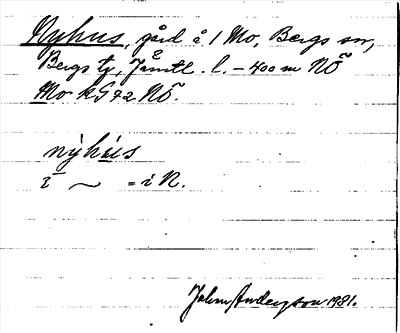 Nyhus, gård å 1 Mo, Bergs sn,
Bergs tg, Jämtl. l. – 400 m NÖ
Mo kG 72 NÖ.
nýhús
i ~ = i N.
John Andersson 1981.